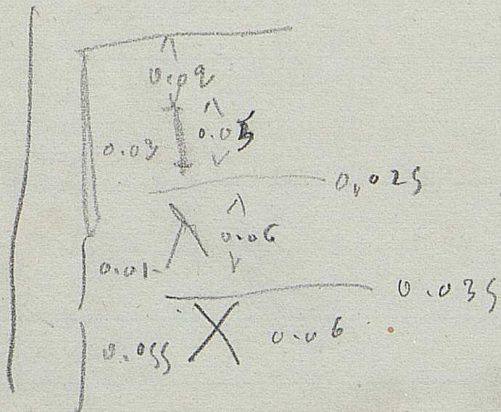 0.09
0.03 0.05
0,025
0.06
0.01
0.035
0.055 0.06